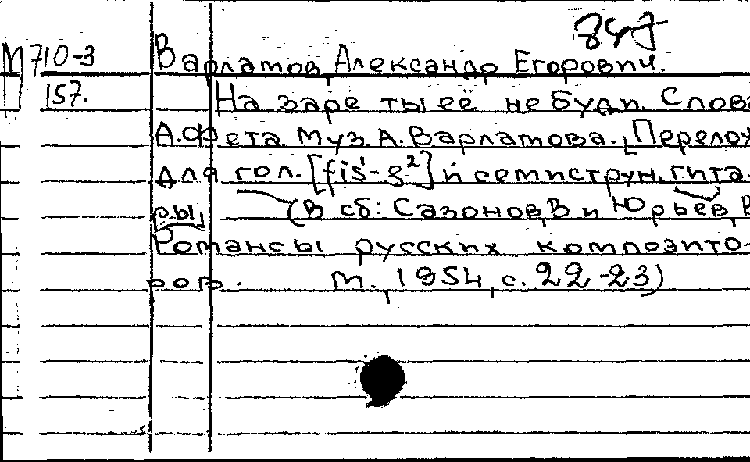 847
М 710-3 Варламов, Александр Егорович.
157. На заре ты её не буди. Слова
А. Фета. Муз. А. Варламова. [Перелож
для гол. [fis¹-g²] и семиструн. гита-
ры, (В сб: Сазонов, В и Юрьев, В
Романсы русских композито-
ров. М., 1954, с. 22-23)